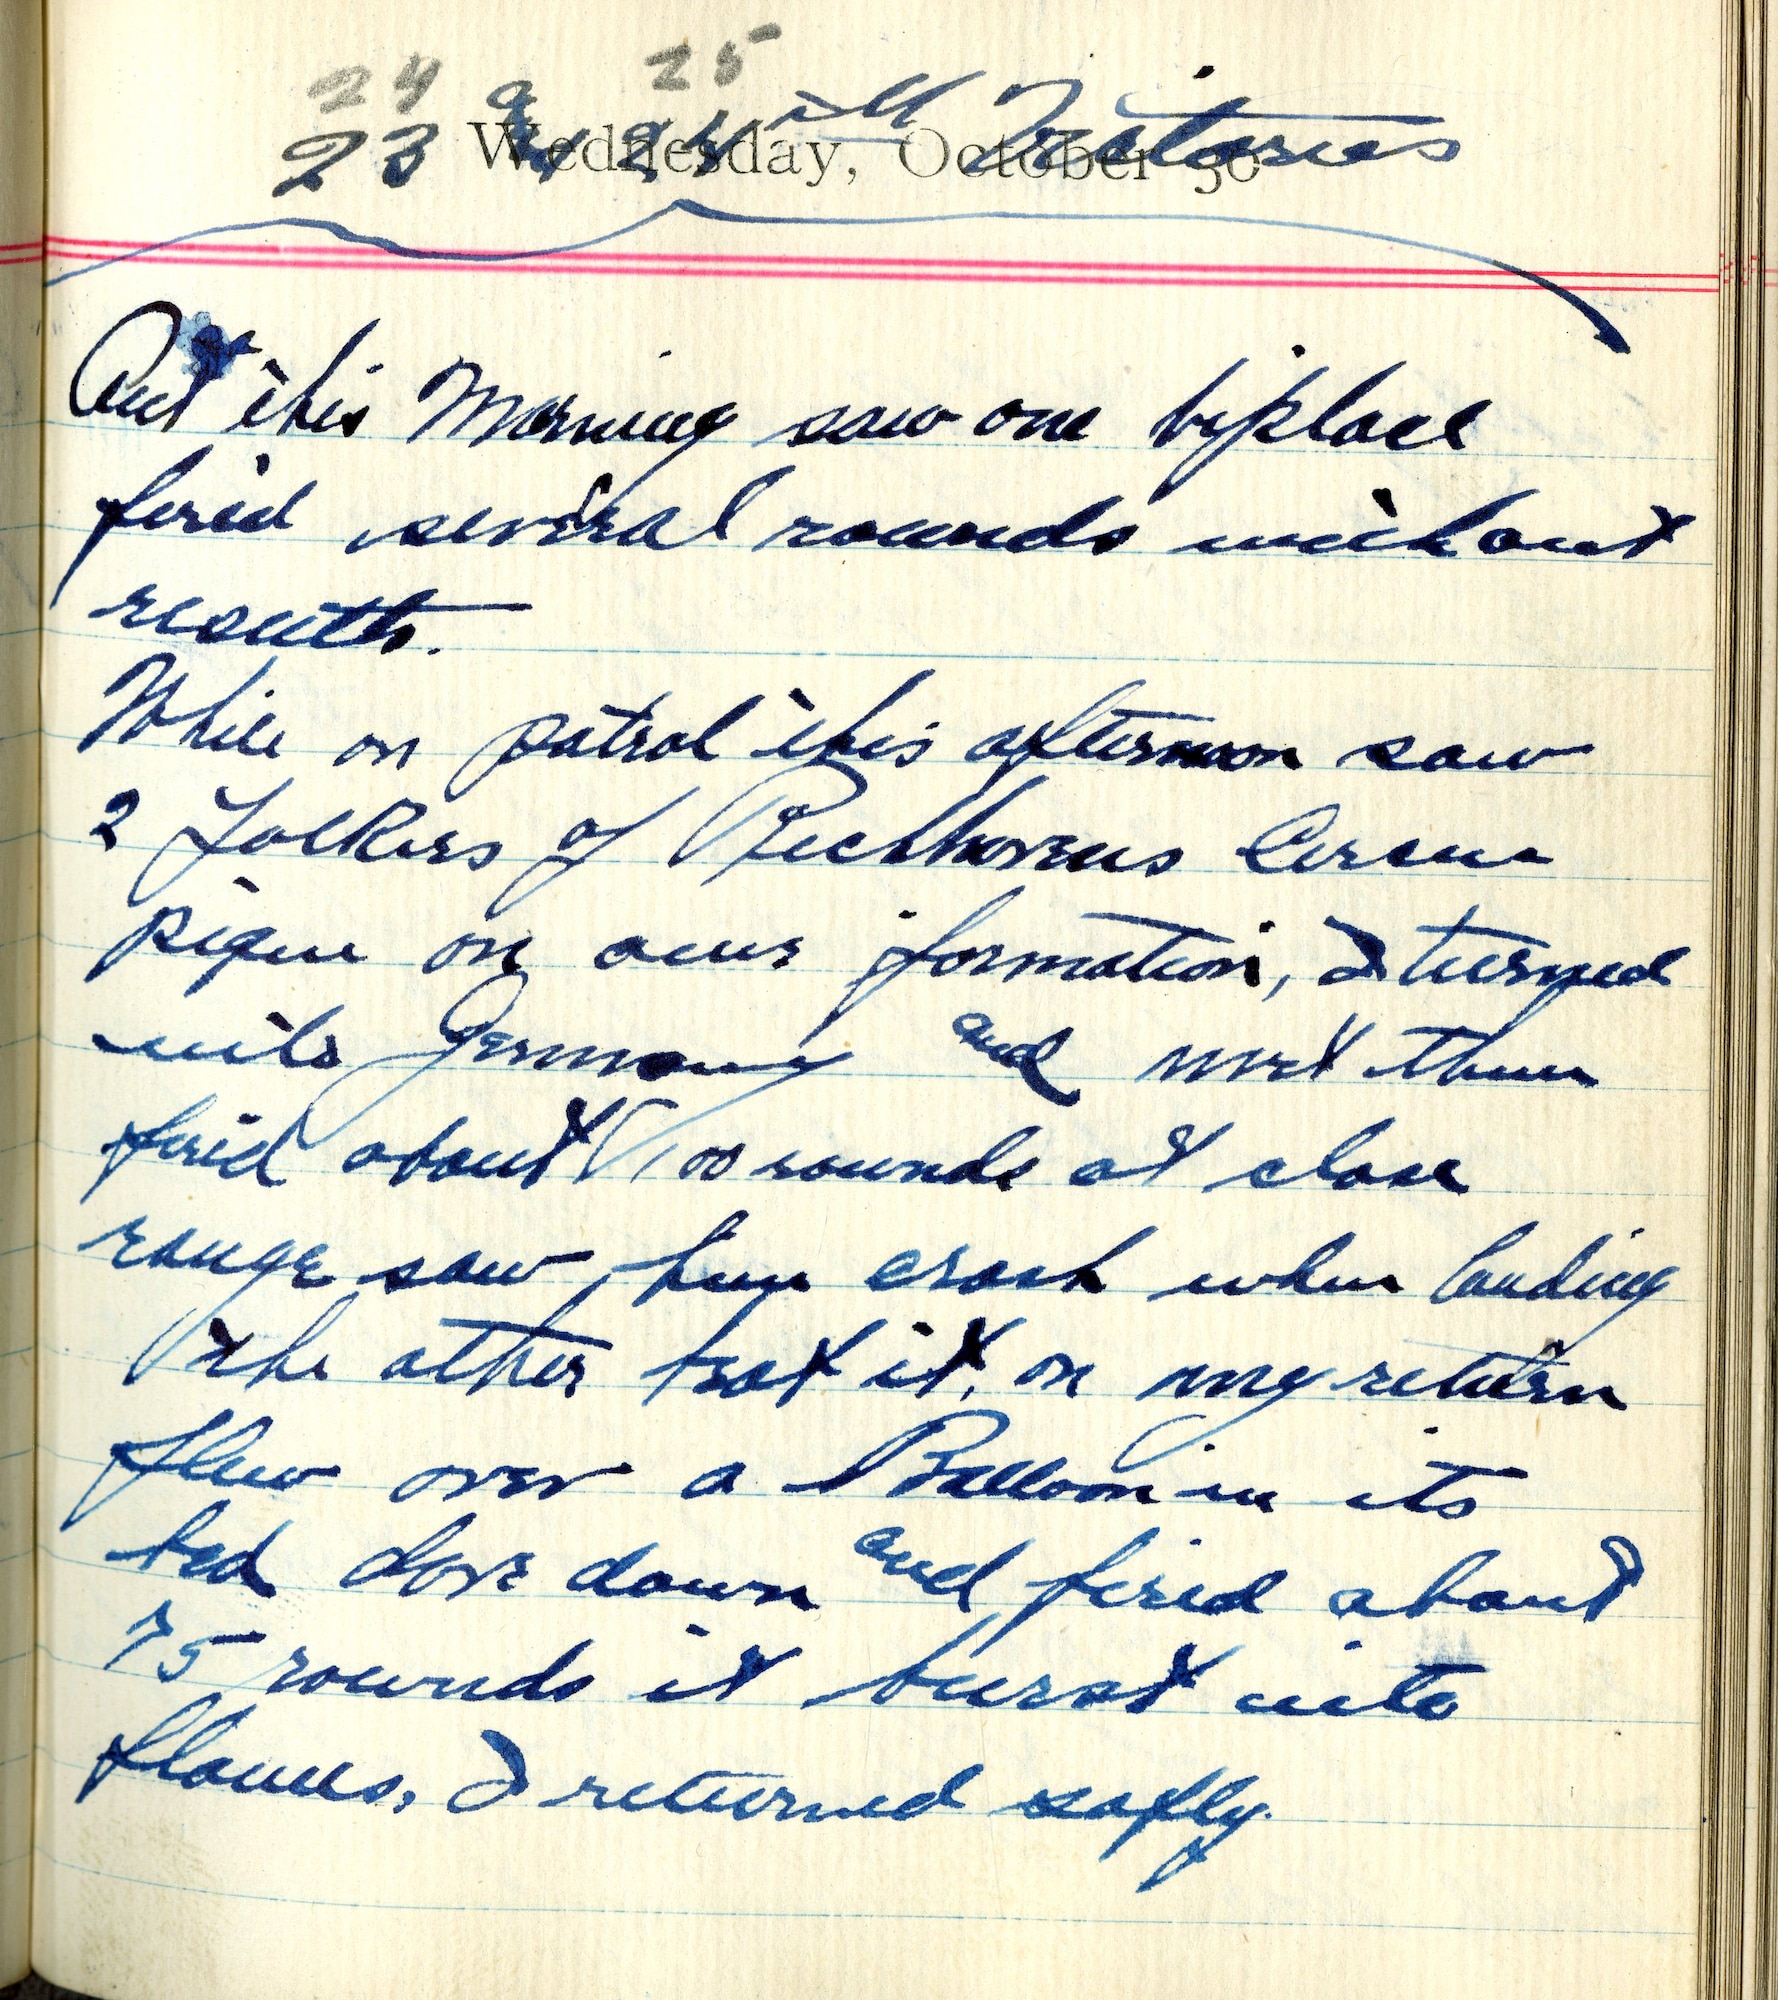 24 25
23 & 24 th Victories
Wednesday, October 30
Out this Morning saw one biplace
fired several rounds without
results.
While on patrol this afternoon saw
2 Fokkers of Richthovens Circus
pique on our formation, I turned
into Germany and met them
fired about 100 rounds at close
range saw him crash when landing
the other beat it. on my return
flew over a Balloon in its
bed dove down and fired about
75 rounds it burst into
flames, I returned safly.